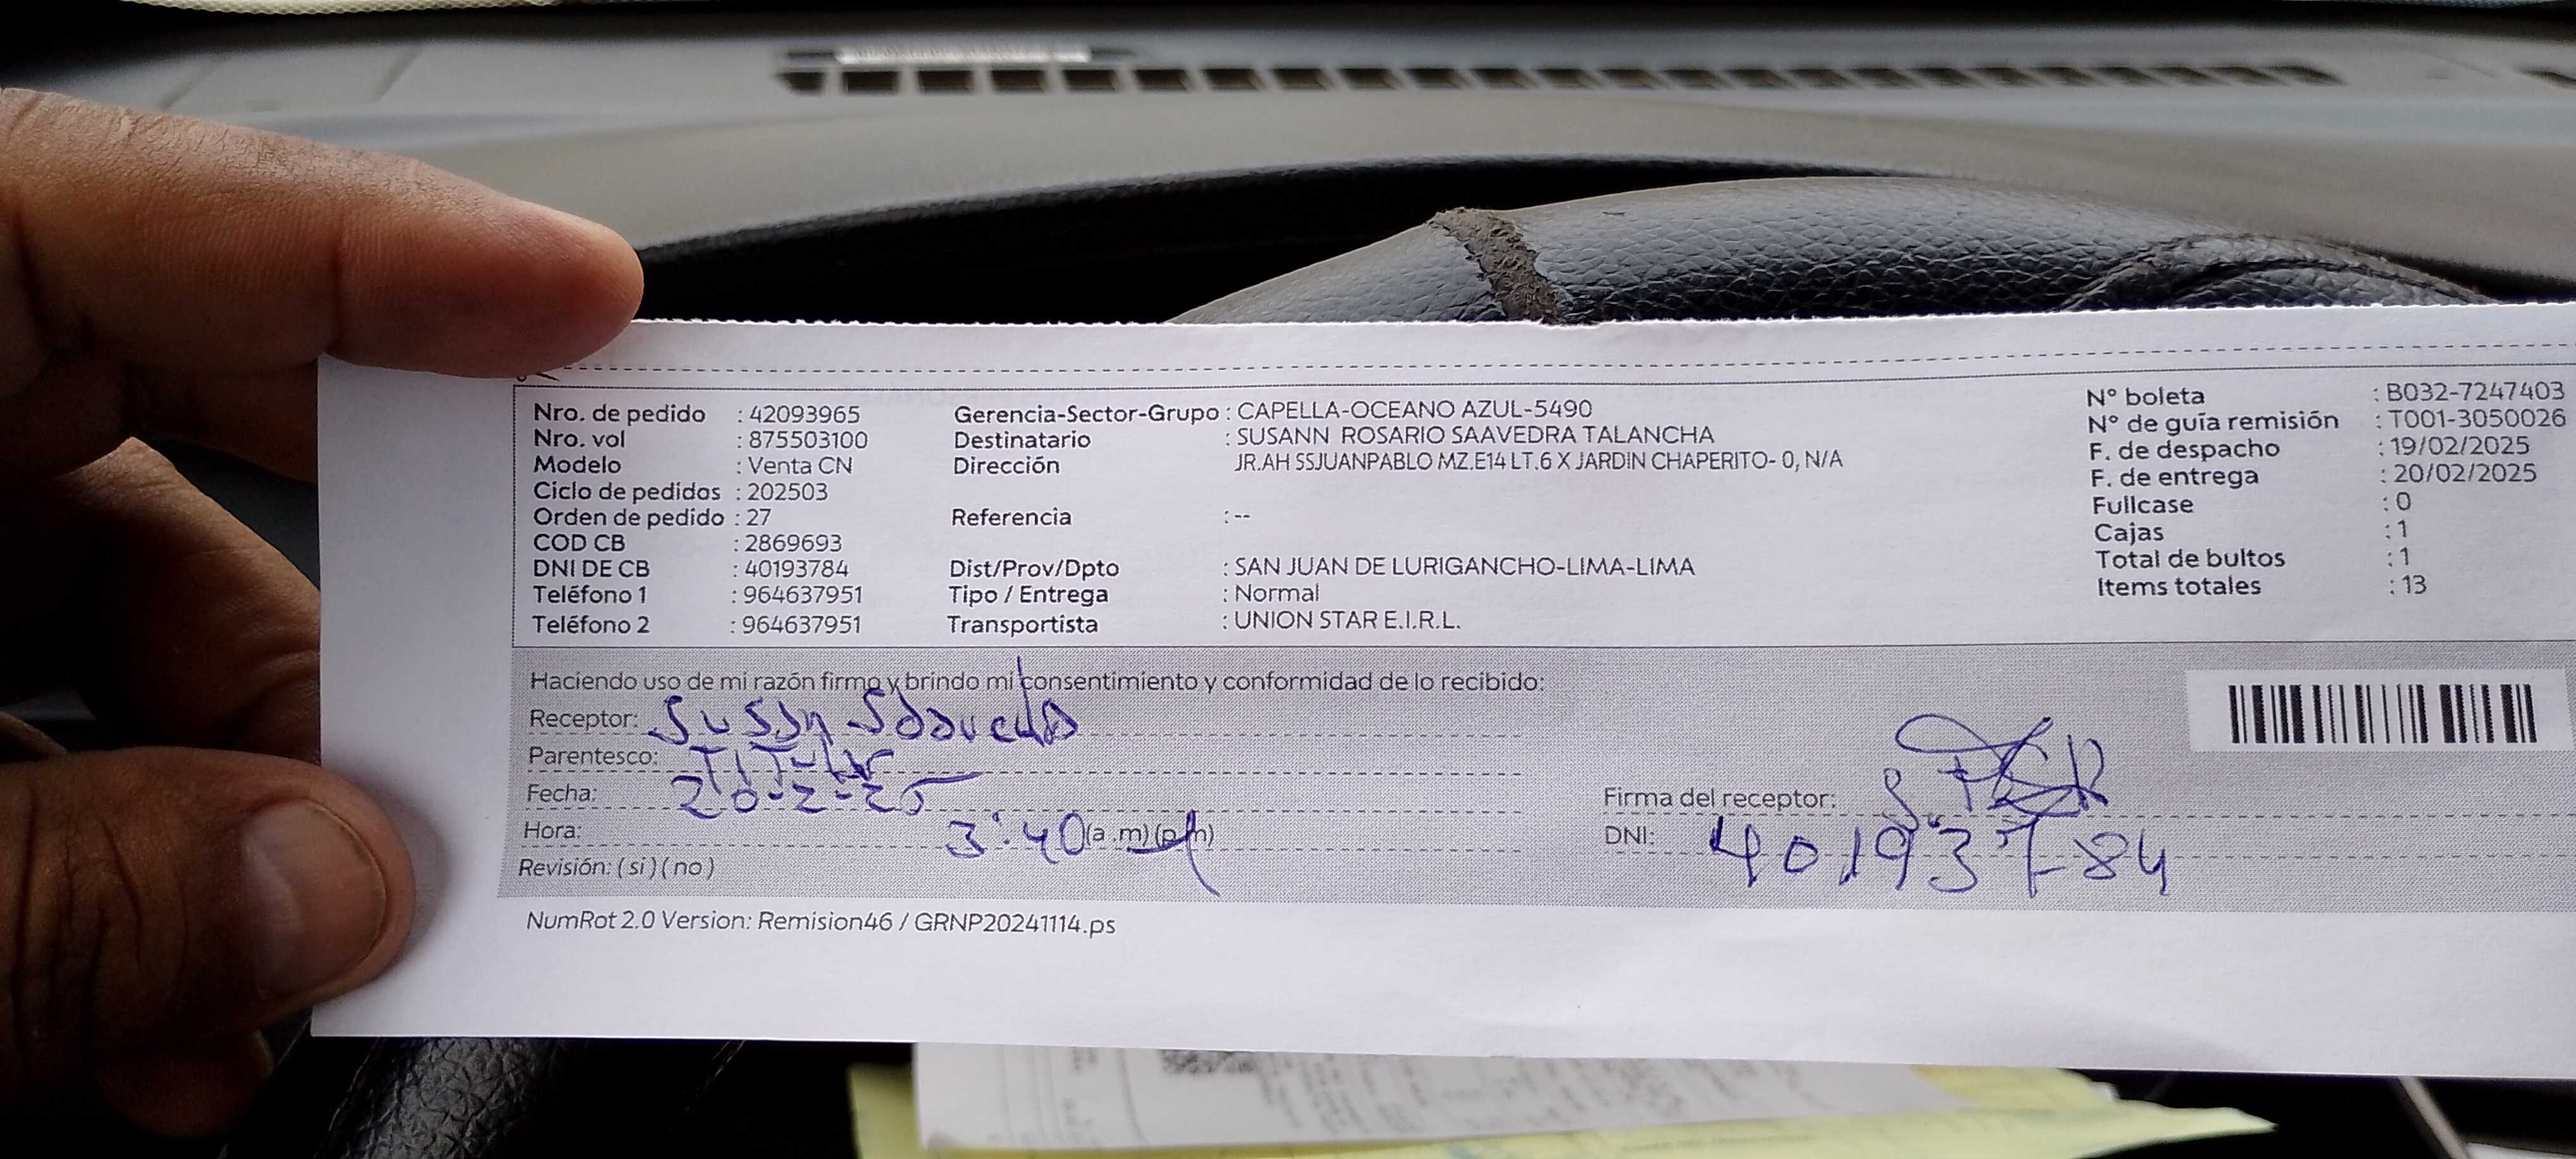 Nro. de pedido : 42093965
Nro. vol : 875503100
Modelo : Venta CN
Ciclo de pedidos : 202503
Orden de pedido : 27
COD CB : 2869693
DNI DE CB : 40193784
Teléfono 1 : 964637951
Teléfono 2 : 964637951
Gerencia-Sector-Grupo : CAPELLA-OCEANO AZUL-5490
Destinatario : SUSANN ROSARIO SAAVEDRA TALANCHA
Dirección JR.AH SSJUANPABLO MZ.E14 LT.6 X JARDIN CHAPERITO- 0, N/A
Referencia : --
Dist/Prov/Dpto : SAN JUAN DE LURIGANCHO-LIMA-LIMA
Tipo / Entrega : Normal
Transportista : UNION STAR E.I.R.L.
N° boleta : B032-7247403
N° de guía remisión : T001-3050026
F. de despacho : 19/02/2025
F. de entrega : 20/02/2025
Fullcase : 0
Cajas : 1
Total de bultos : 1
Items totales : 13
Haciendo uso de mi razón firmo y brindo mi consentimiento y conformidad de lo recibido:
Receptor: Sussn Saavedra
Parentesco: TiTular
Fecha: 20-2-25
Hora: 3:40 (a.m) (p.m)
Revisión: ( si ) ( no )
Firma del receptor:
DNI: 40193784
NumRot 2.0 Version: Remision46 / GRNP20241114.ps